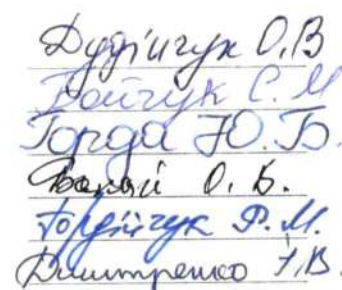 Дудійчук О.В
Бойчук С. М
Горда Ю. Б.
О. Б.
Гордійчук Р. М.
Дмитренко І.В.